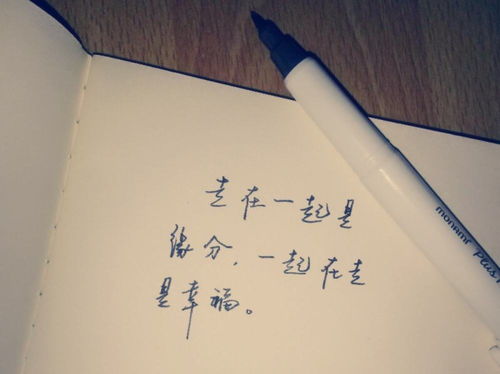 走在一起是
缘分，一起在走
是幸福。
monami Plus